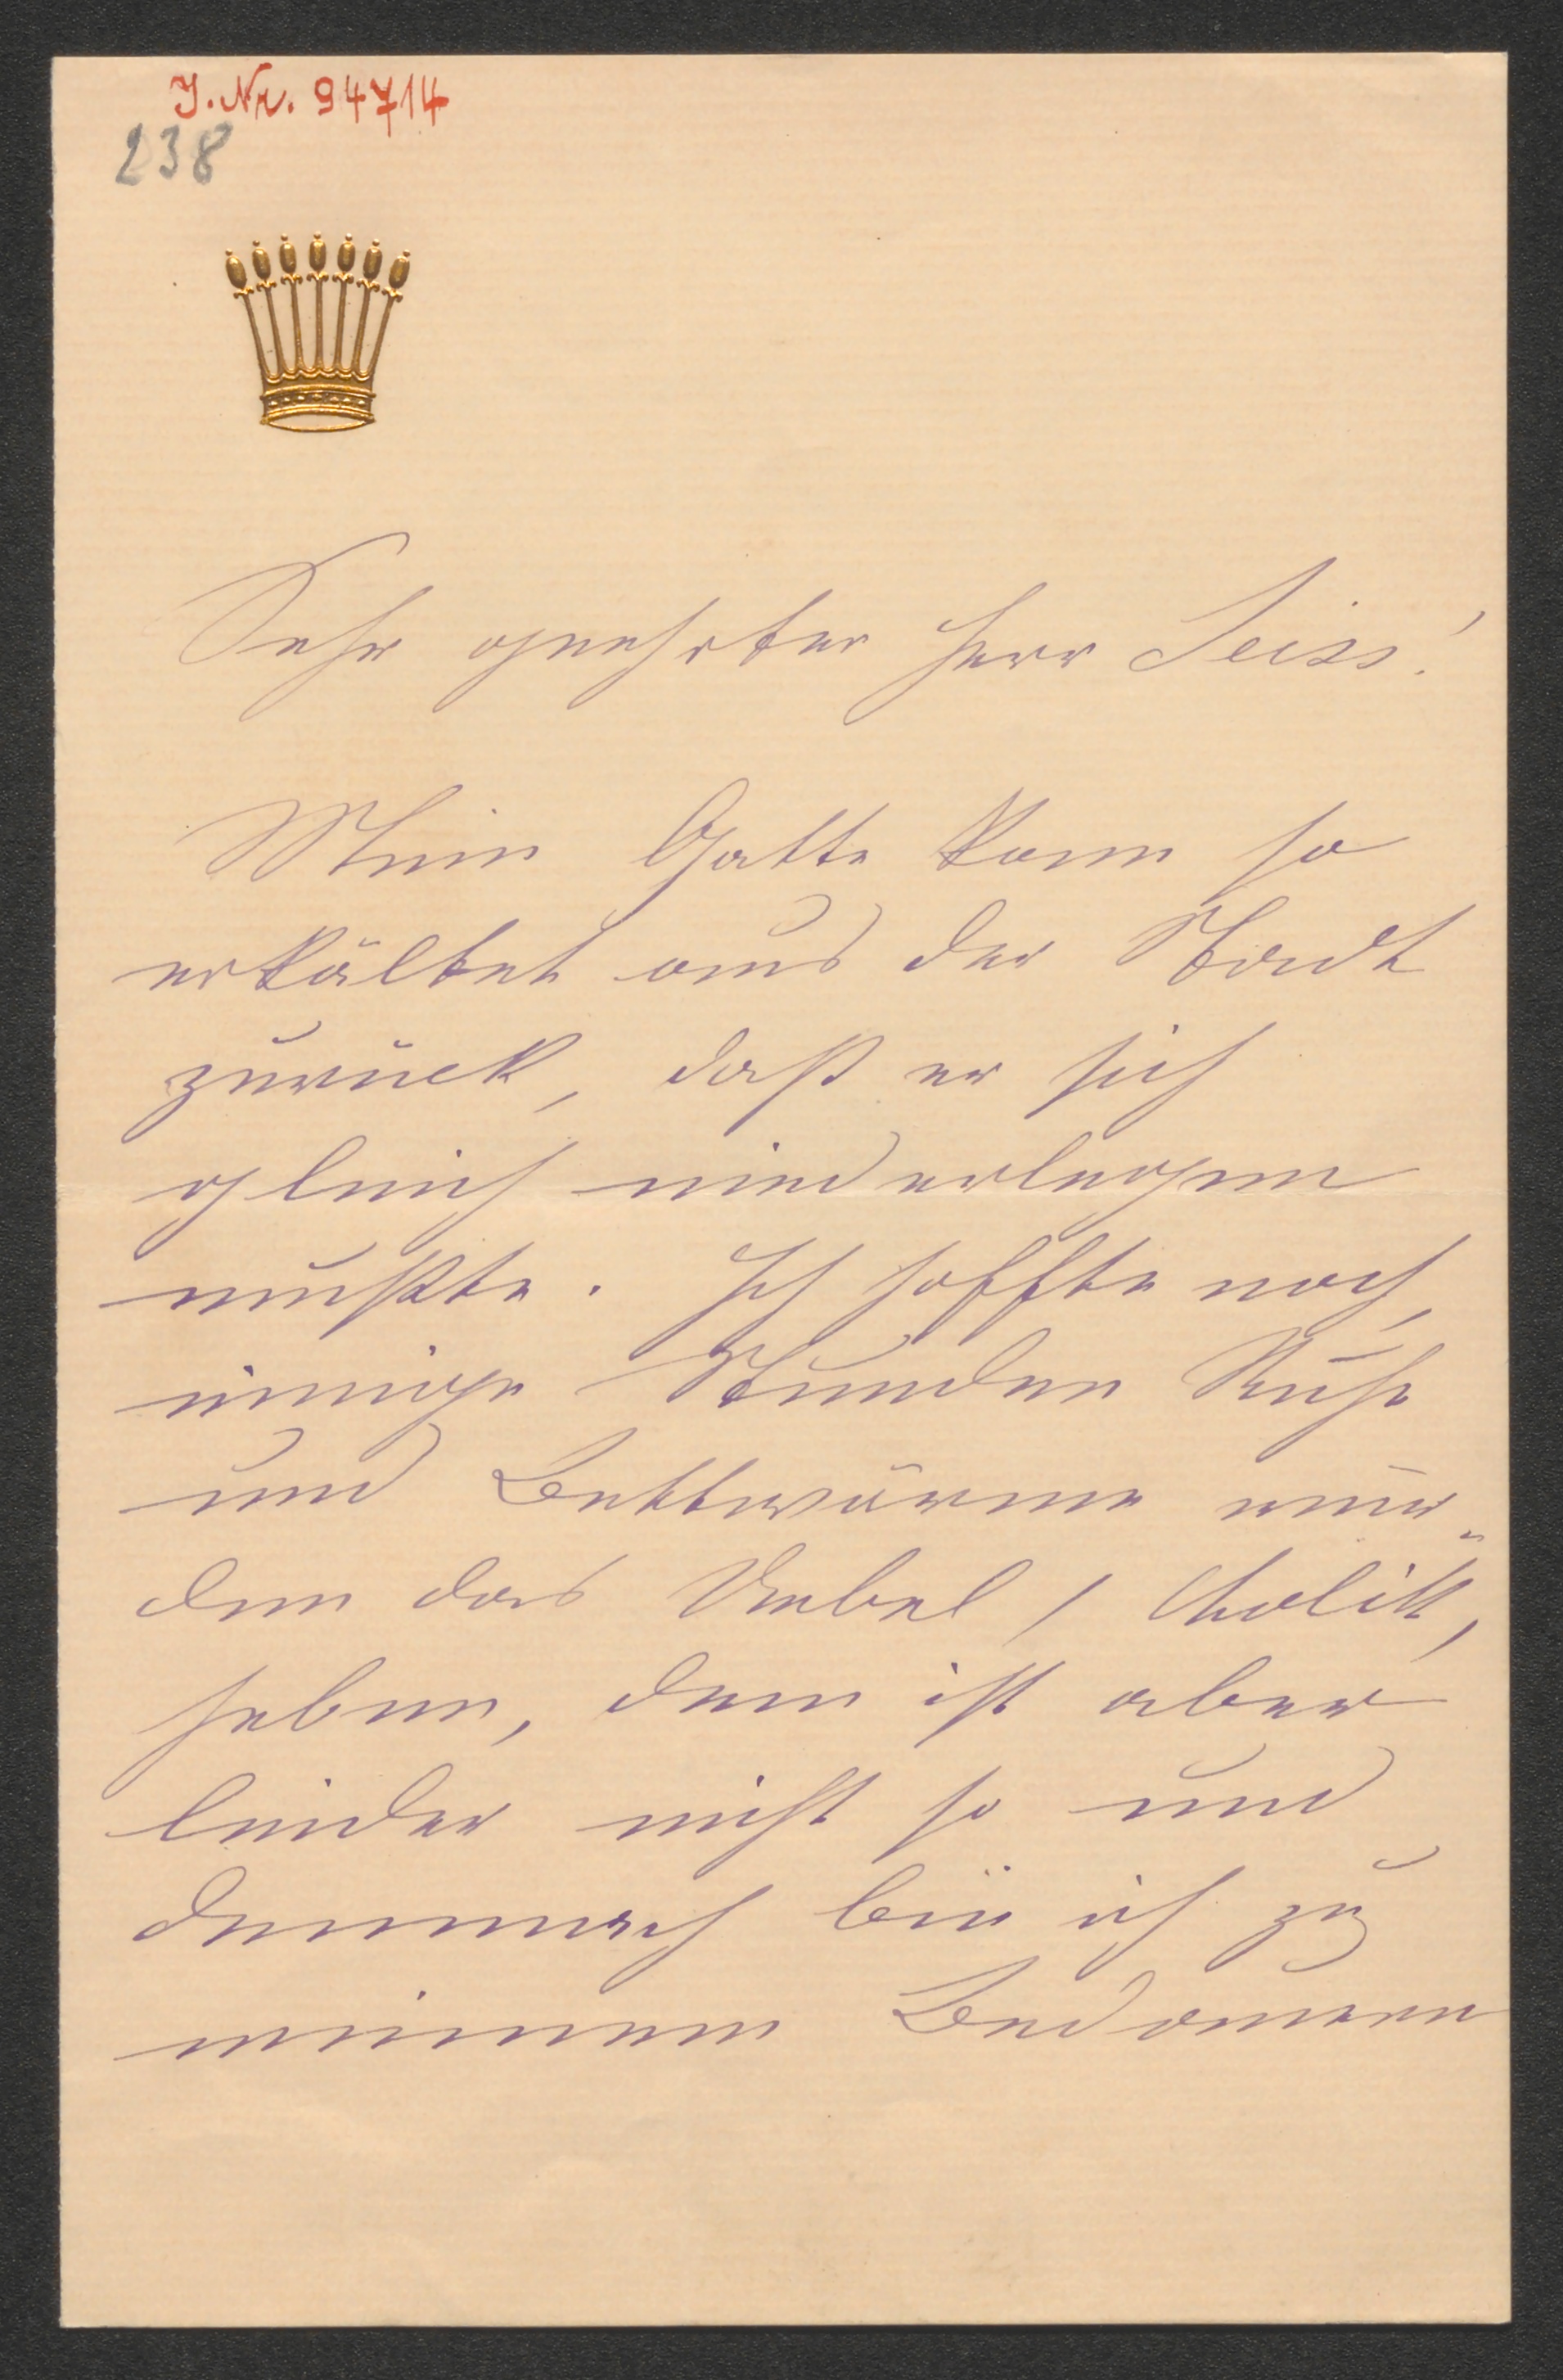 J. Nr. 94714
238
Sehr geehrter Herr Seiss!
Mein Gatte kam so
erkältet aus der Stadt
zurück, daß er sich
gleich niederlegen
mußte. Ich hoffte noch,
einige Stunden Ruhe
und Bettwärme wür-
den das Uebel / Cholik,
heben, dem ist aber
leider nicht so und
demnach bin ich zu
meinem Bedauern